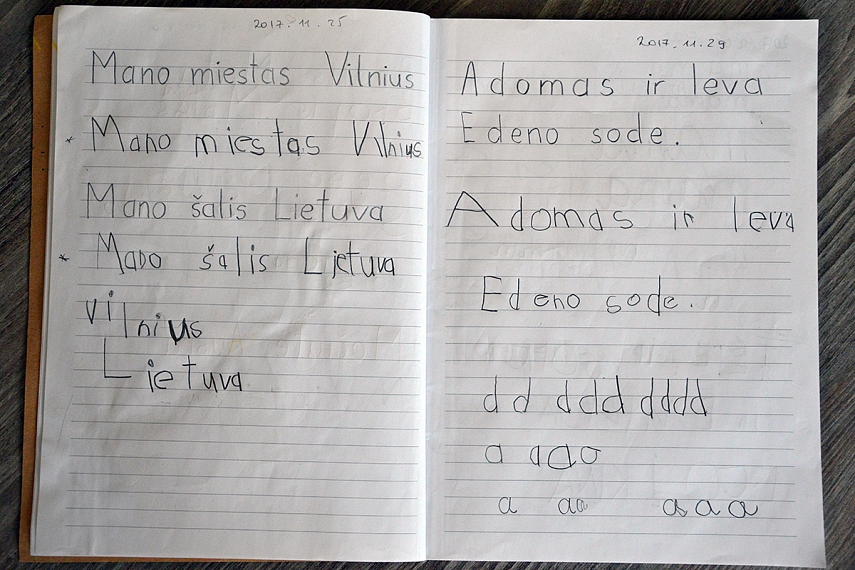 2017. 11. 25
Mano miestas Vilnius
* Mano miestas Vilnius
Mano šalis Lietuva
* Mano šalis Lietuva
Vilnius
Lietuva
2017. 11. 29
Adomas ir Ieva
Edeno sode.
Adomas ir Ieva
Edeno sode.
d d d d d d d d d
a a a a
a a a a a a